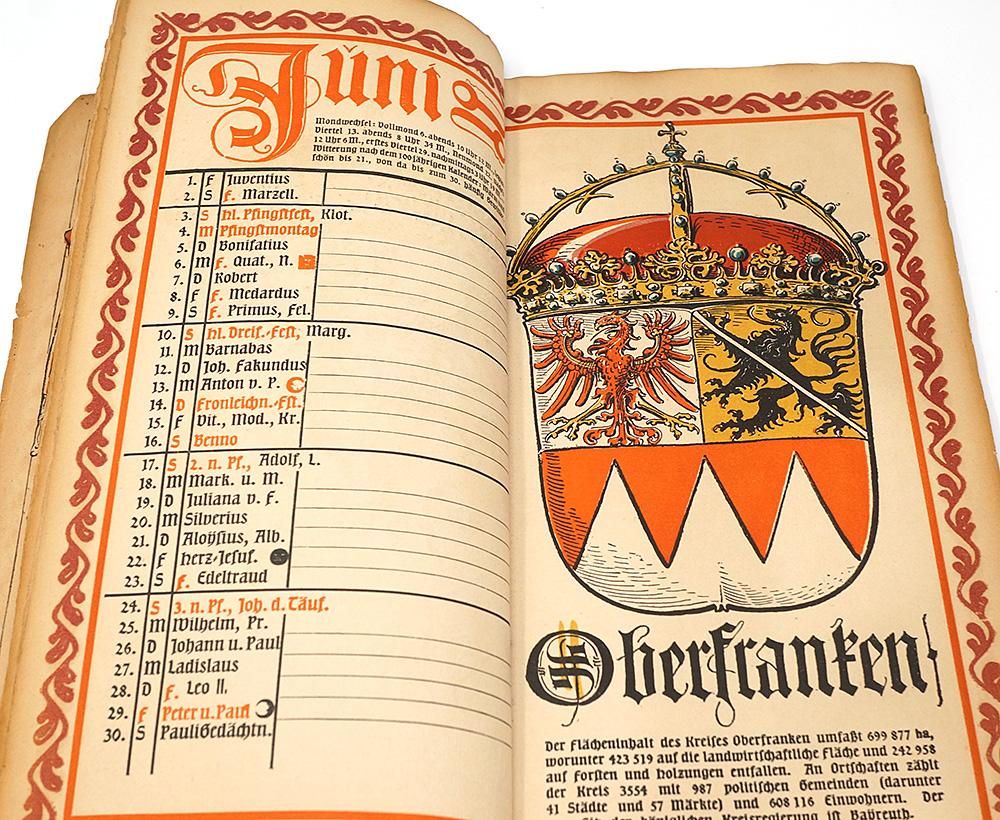 Jŭni
Mondwechsel: Vollmond 6. abends 10 Uhr 12 M.,
Viertel 13. abends 8 Uhr 34 M., Neumond 22.
12 Uhr 6 M., erstes Viertel 29. nachmittags 3 Uhr
Witterung nach dem 100jährigen Kalender:
schön bis 21., von da bis zum 30. häufig
1. F Juventius
2. S f. Marzell.
3. S hl. Pfingstfest, Klot.
4. M Pfingstmontag
5. D Bonifatius
6. M f. Quat., N.
7. D Robert
8. F f. Medardus
9. S f. Primus, Fel.
10. S hl. Dreif.-Fest, Marg.
11. M Barnabas
12. D Joh. Fakundus
13. M Anton v. P.
14. D Fronleichn.-Fst.
15. F Vit., Mod., Kr.
16. S Benno
17. S 2. n. Pf., Adolf, L.
18. M Mark. u. M.
19. D Juliana v. F.
20. M Silverius
21. D Aloysius, Alb.
22. F Herz-Jesuf.
23. S f. Edeltraud
24. S 3. n. Pf., Joh. d. Täuf.
25. M Wilhelm, Pr.
26. D Johann u. Paul
27. M Ladislaus
28. D f. Leo II.
29. F Peter u. Paul
30. S Pauli Gedächtn.
Oberfranken
Der Flächeninhalt des Kreises Oberfranken umfaßt 699 877 ha,
worunter 423 519 auf die landwirtschaftliche Fläche und 242 958
auf Forsten und Holzungen entfallen. An Ortschaften zählt
der Kreis 3554 mit 987 politischen Gemeinden (darunter
41 Städte und 57 Märkte) und 608 116 Einwohnern. Der
Sitz der königlichen Kreisregierung ist Bayreuth.